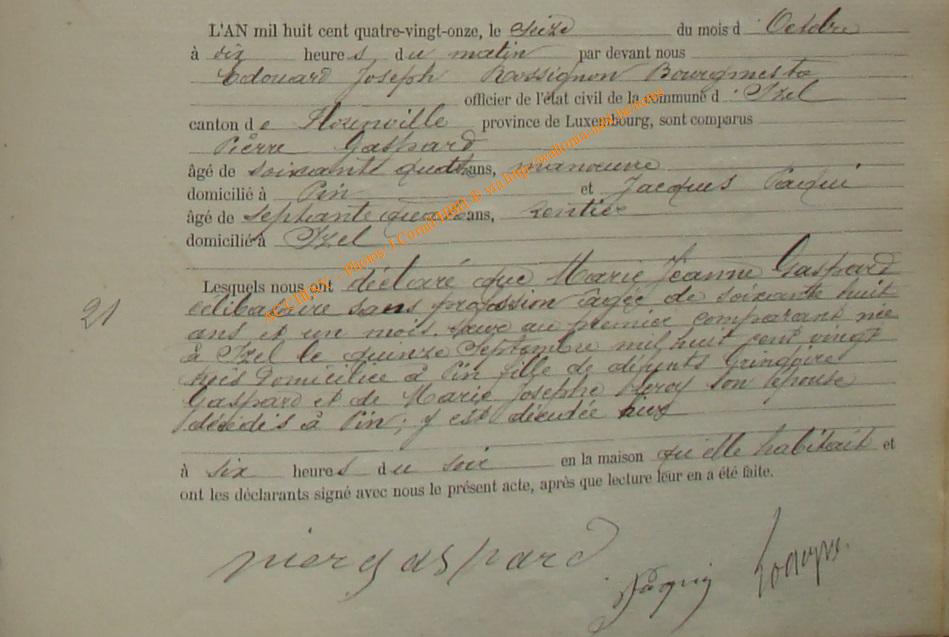 L'AN mil huit cent quatre-vingt-onze, le seize du mois d Octobre
à dix heures du matin par devant nous
Edouard Joseph Rossignon Bourgmestre
officier de l'état civil de la commune d Izel
canton de Florenville province de Luxembourg, sont comparus
Pierre Gaspard
âgé de soixante quatre ans, manoeuvre
domicilié à Pin et Jacques Paqui
âgé de septante quatre ans, rentier
domicilié à Izel
Lesquels nous ont déclaré que Marie Jeanne Gaspard
célibataire sans profession âgée de soixante huit
21
ans et un mois, soeur au premier comparant née
à Izel le quinze Septembre mil huit cent vingt
trois domiciliée à Pin fille de défunts Gringoire
Gaspard et de Marie Josephe son épouse
décédés à Pin; y est décédée hier
à six heures du soir en la maison qu'elle habitait et
ont les déclarants signé avec nous le présent acte, après que lecture leur en a été faite.
pierg aspard